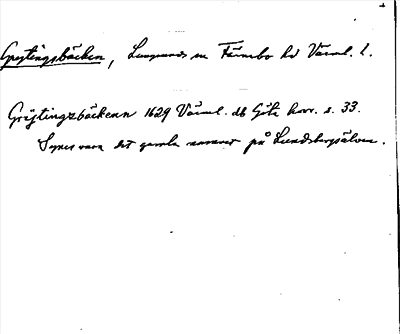 Grytingsbäcken, Lungsunds sn Färnebo hd Värml. l.
Gröjtingzbäckenn 1629 Värml. db Göta hovr. s. 33.
Synes vara det gamla namnet på Lundsbergsälven.